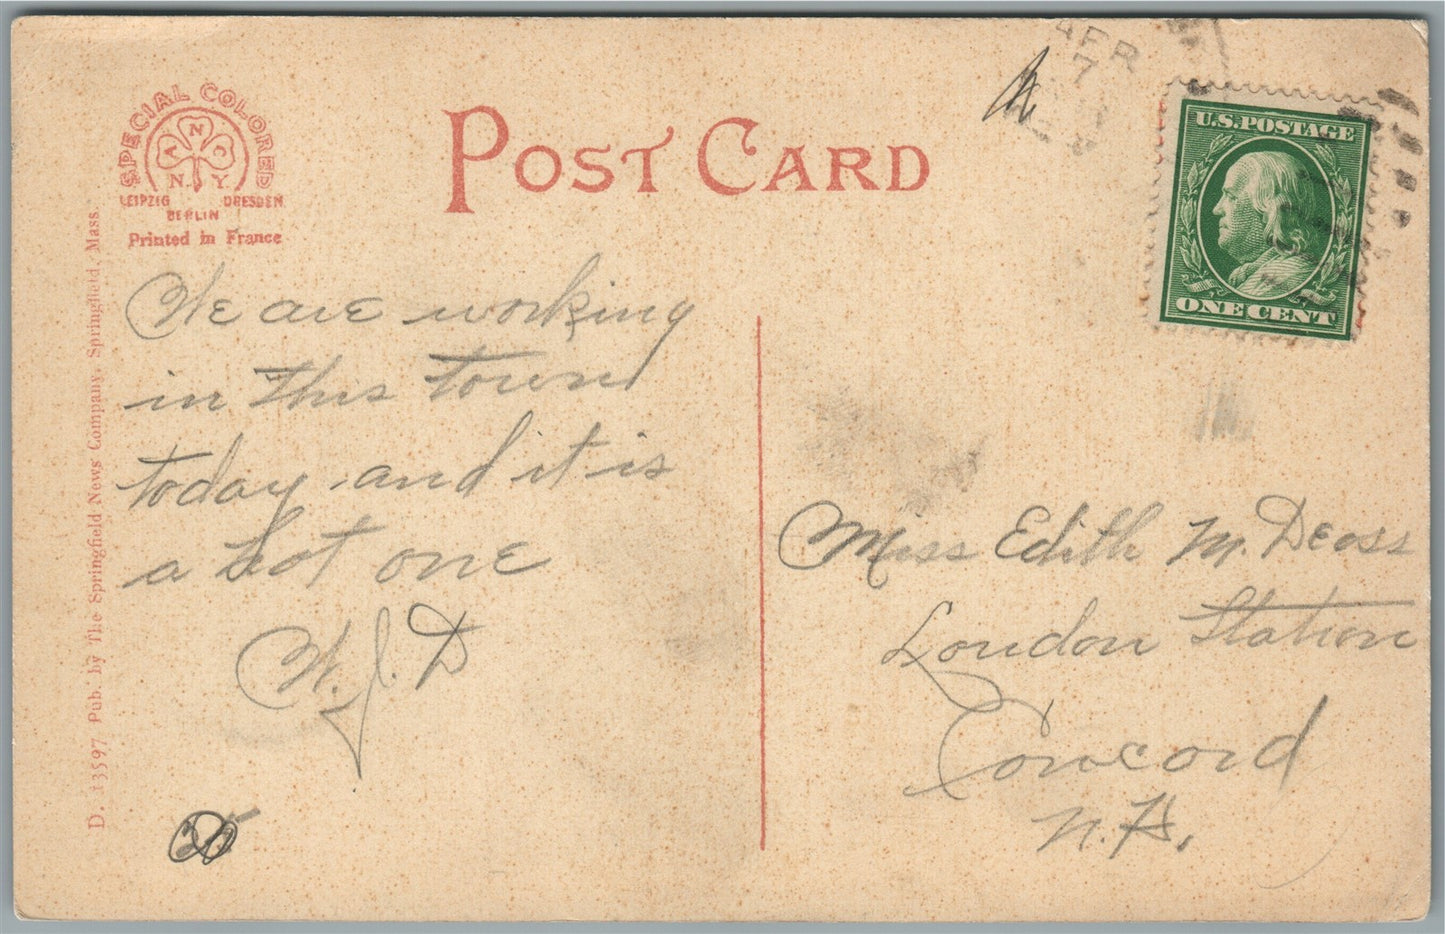 SPECIAL COLORED
A N C O
N. Y.
LEIPZIG DRESDEN
BERLIN
Printed in France
POST CARD
APR
7
U.S. POSTAGE
ONE CENT
We are working
in this town
today and it is
a hot one
W. J. D
Miss Edith M.
London Station
Concord
N. H.
D. 13597 Pub. by The Springfield News Company, Springfield, Mass.